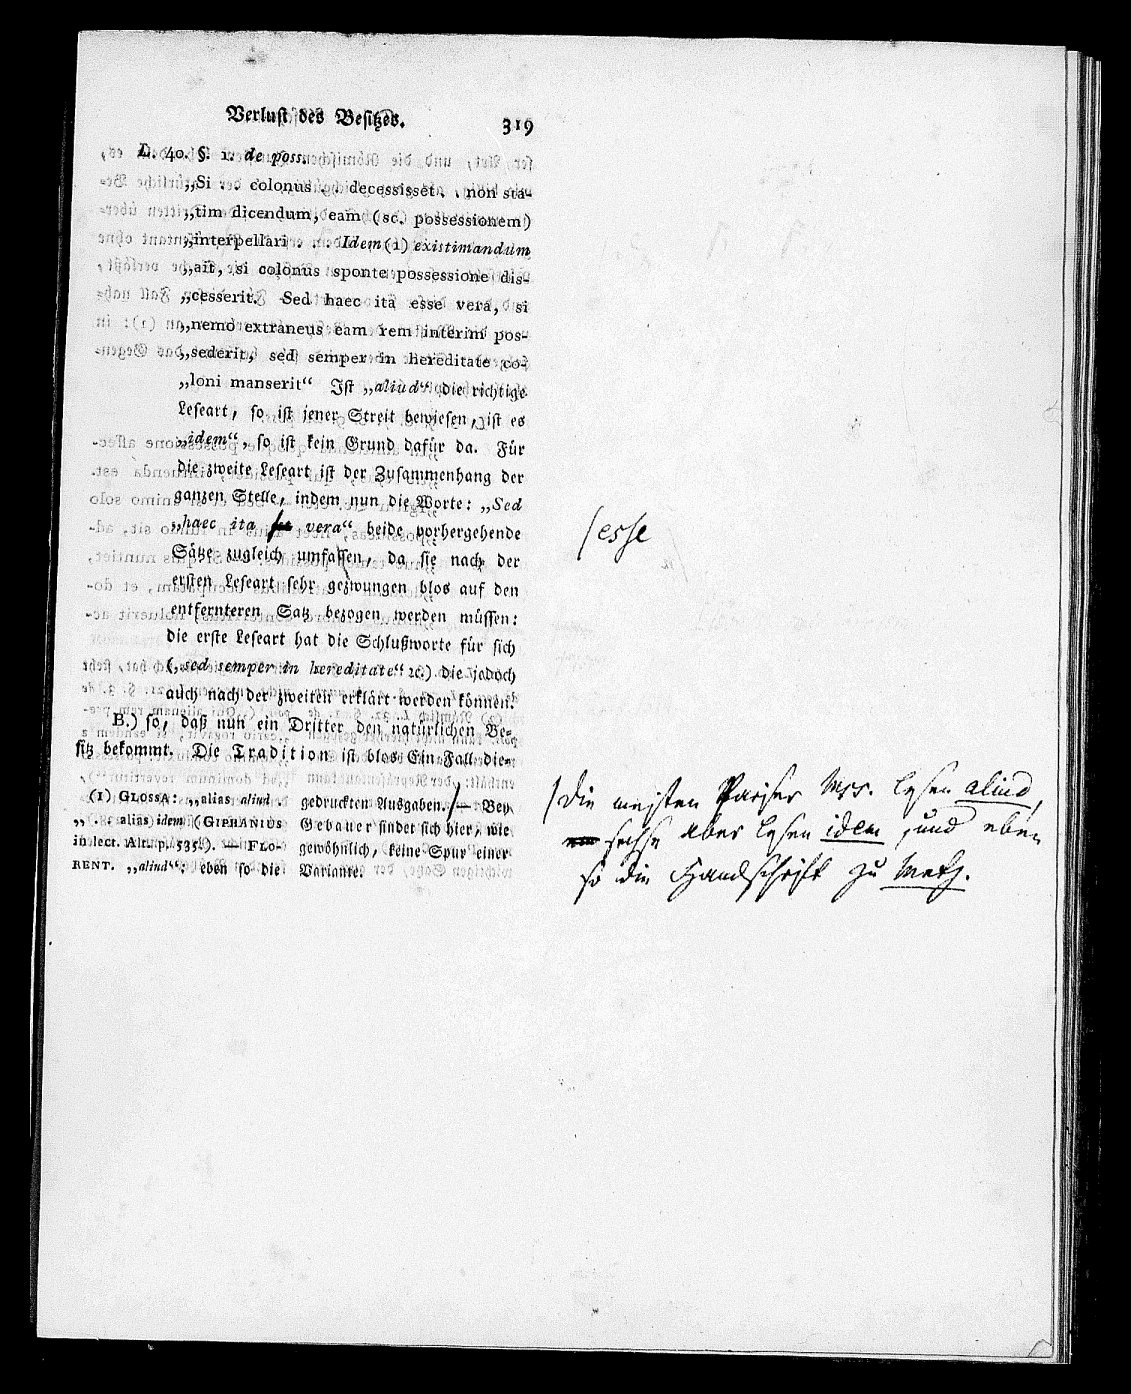 Verlust des Besitzes. 319
L. 40. §. 1. de poss.
„Si . . colonus . . decessisset . . non sta-
„tim dicendum, eam (sc. possessionem)
„interpellari . . . Idem (1) existimandum
„ait, si colonus sponte possessione dis-
„cesserit. Sed haec ita esse vera, si
„nemo extraneus eam rem interim pos-
„sederit, sed semper in hereditate co-
„loni manserit“ Ist „aliud“ die richtige
Leseart, so ist jener Streit bewiesen, ist es
„idem“, so ist kein Grund dafür da. Für
die zweite Leseart ist der Zusammenhang der
ganzen Stelle, indem nun die Worte: „Sed
„haec ita vera“ beide vorhergehende
/esse
Sätze zugleich umfassen, da sie nach der
ersten Leseart sehr gezwungen blos auf den
entfernteren Satz bezogen werden müssen:
die erste Leseart hat die Schlußworte für sich
(„sed semper in hereditate“ ꝛc.) die jedoch
auch nach der zweiten erklärt werden können.
B.) so, daß nun ein Dritter den natürlichen Be-
sitz bekommt. Die Tradition ist blos Ein Fall die-
(1) GLOSSA: „alias aliud .
„ . . alias idem (GIPHANIUS
in lect. Alt. p. 535.). — FLO-
RENT. „aliud“: eben so die
gedruckten Ausgaben. — Bey
Gebauer findet sich hier, wie
gewöhnlich, keine Spur einer
Variante.
/ Die meisten Pariser Mss. lesen aliud,
sechse aber lesen idem, und eben
so die Handschrift zu Metz.